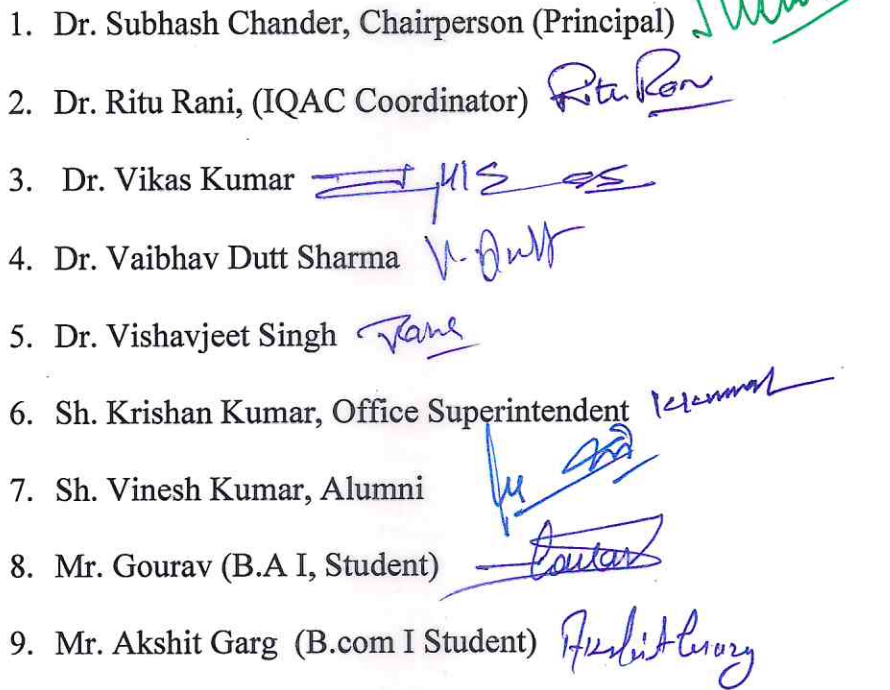 1. Dr. Subhash Chander, Chairperson (Principal)
2. Dr. Ritu Rani, (IQAC Coordinator) Ritu Rani
3. Dr. Vikas Kumar
4. Dr. Vaibhav Dutt Sharma V. Dutt
5. Dr. Vishavjeet Singh
6. Sh. Krishan Kumar, Office Superintendent
7. Sh. Vinesh Kumar, Alumni
8. Mr. Gourav (B.A I, Student)
9. Mr. Akshit Garg (B.com I Student) Akshit Garg